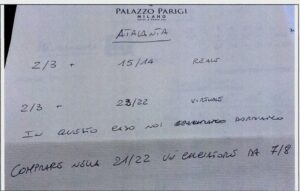 PALAZZO PARIGI
MILANO
ATALANTA
2/3 + 15/14 REALE
2/3 + 23/22 VIRTUALE
IN QUESTO CASO NOI POTREMMO
COMPRARE NELLA 21/22 UN CALCIATORE DA 7/8